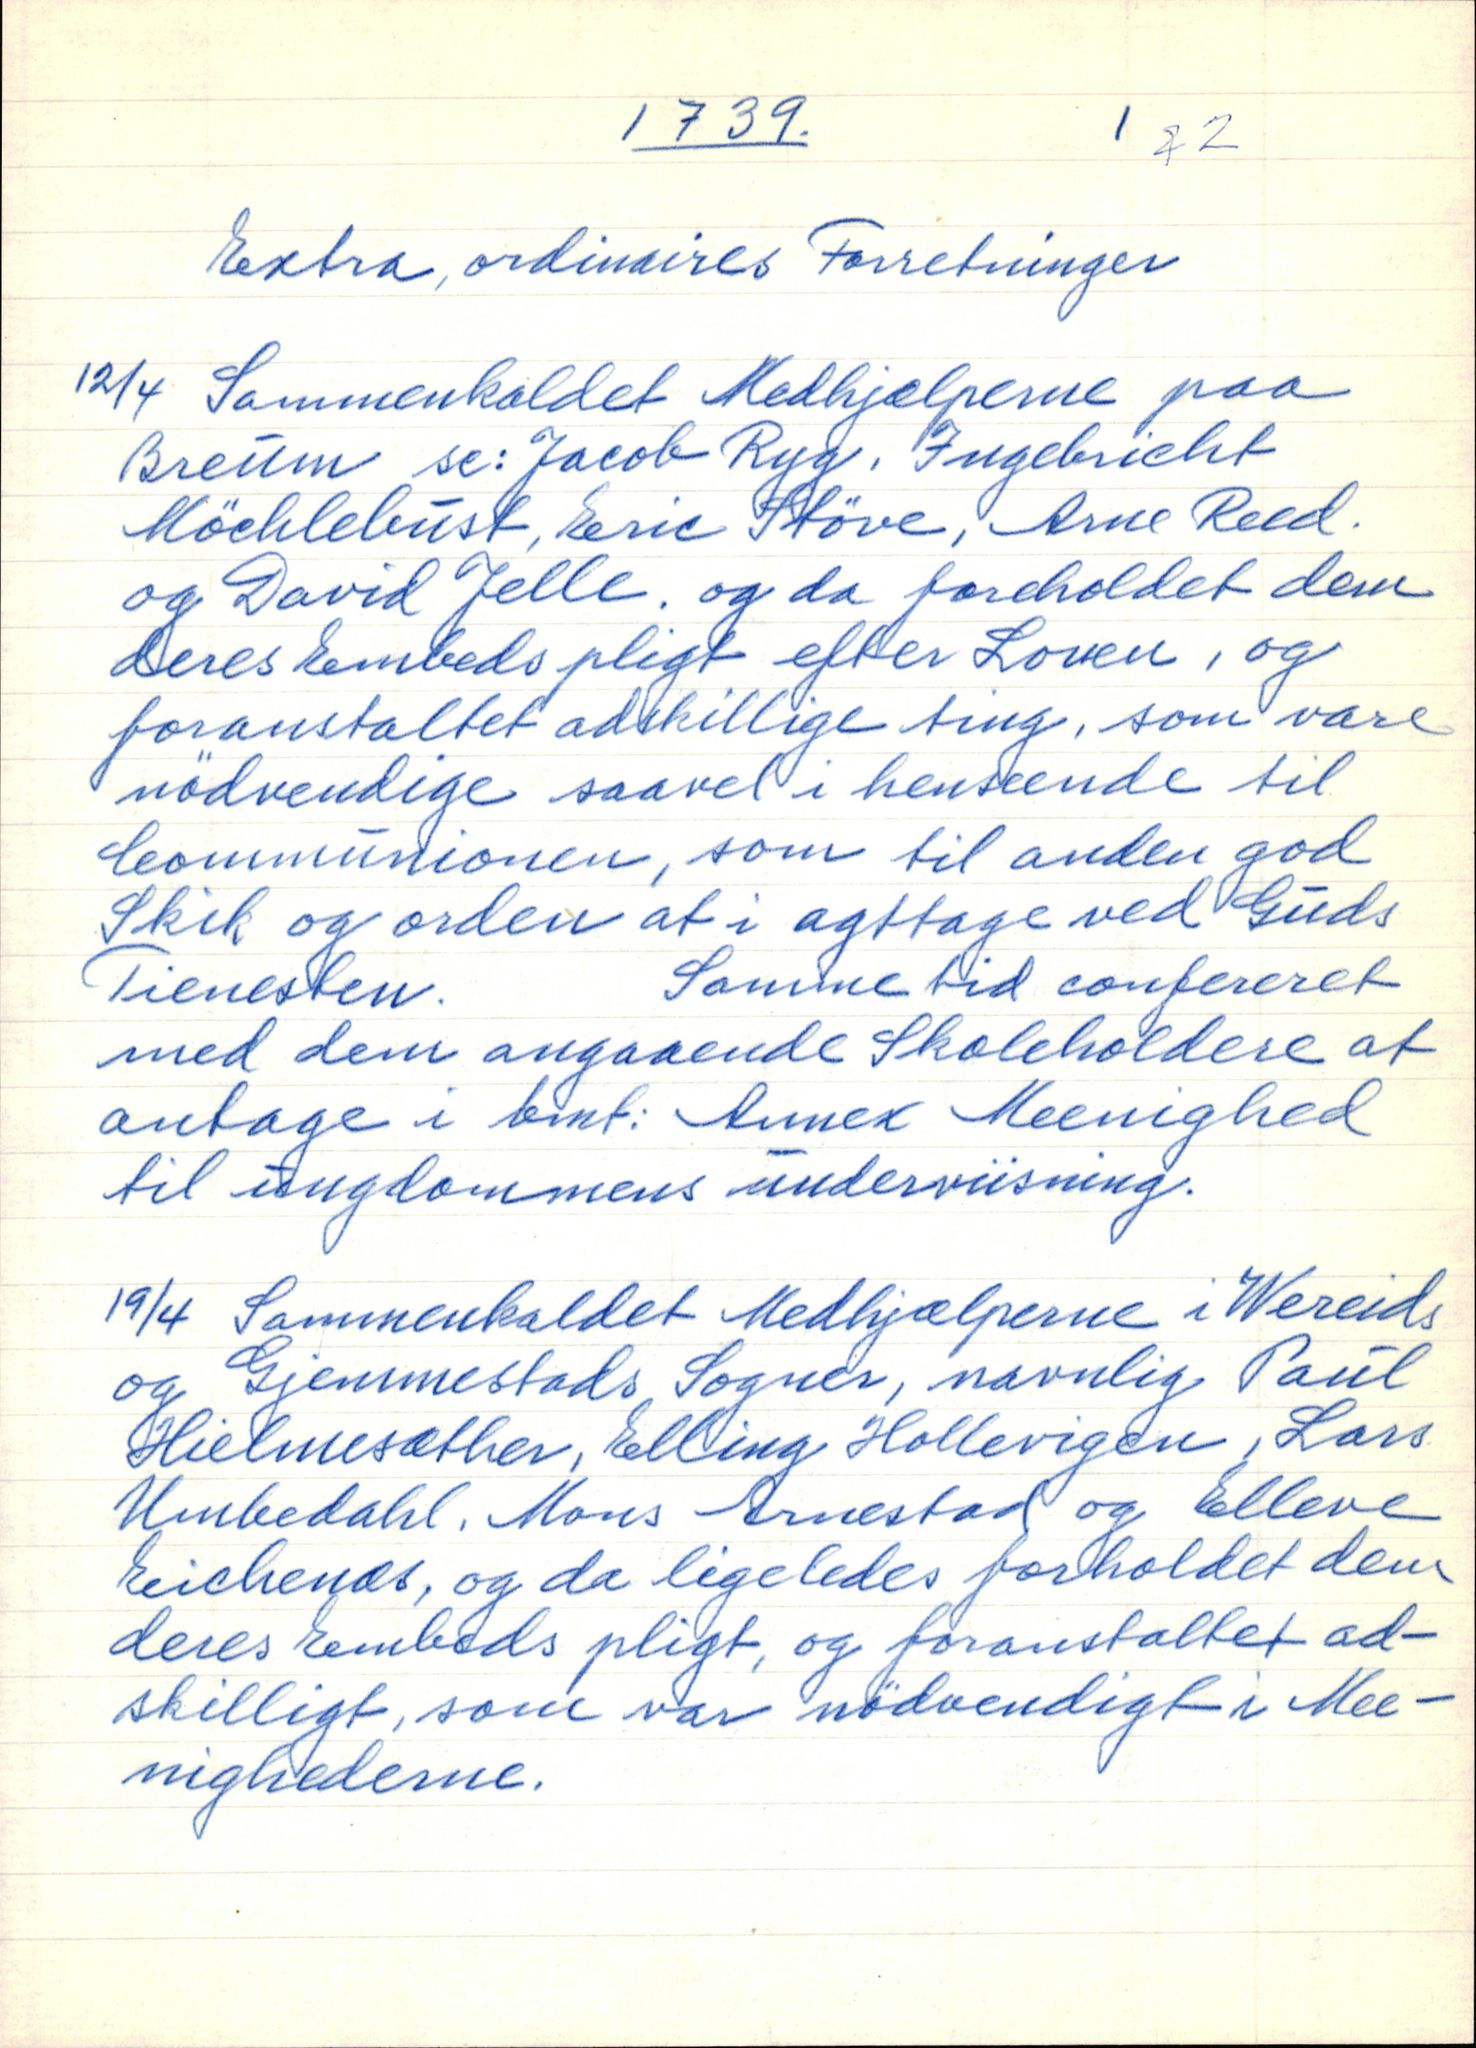 1739.
1 2
Extra, ordinaires Forretninger
12/4 Sammenkaldet Medhjælperne paa
Breum sc: Jacob Ryg. Ingebricht
Möchlebust, Eric Stöve, Arne Reed.
og David Jelle. og da foreholdet dem
deres Embeds pligt efter Loven, og
foranstaltet adskillige ting, som vare
nödvendige saavel i henseende til
Communionen, som til anden god
Skik og orden at i agttage ved Guds
Tienesten. Samme tid confereret
med dem angaaende Skoleholdere at
antage i bmt: Annex Meenighed
til ungdommens underviisning.
19/4 Sammenkaldet Medhjælperne i Wereids
og Gjemmestads Sogner, navnlig Paul
Hielmesæther, Elling Hollevigen, Lars
Umbedahl. Mons Arnestad og Elleve
Eichenæs, og da ligeledes forholdet dem
deres Embeds pligt, og foranstaltet ad-
skilligt, som var nödvendigt i Mee-
nighederne.